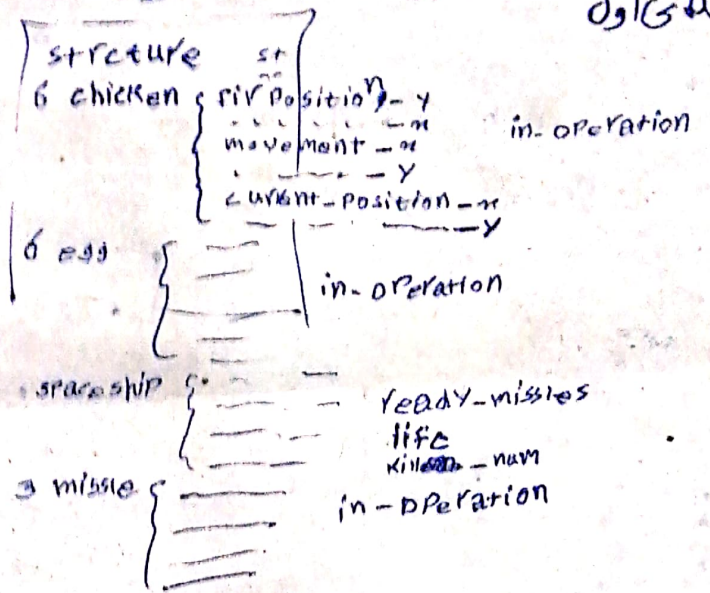 strcture st
6 chicken { position - y
- x
movement - x
- y
current - position - x
- y
in - operation
6 egg {
in - operation
spaceship {
ready - missles
life
- num
3 missle {
in - operation